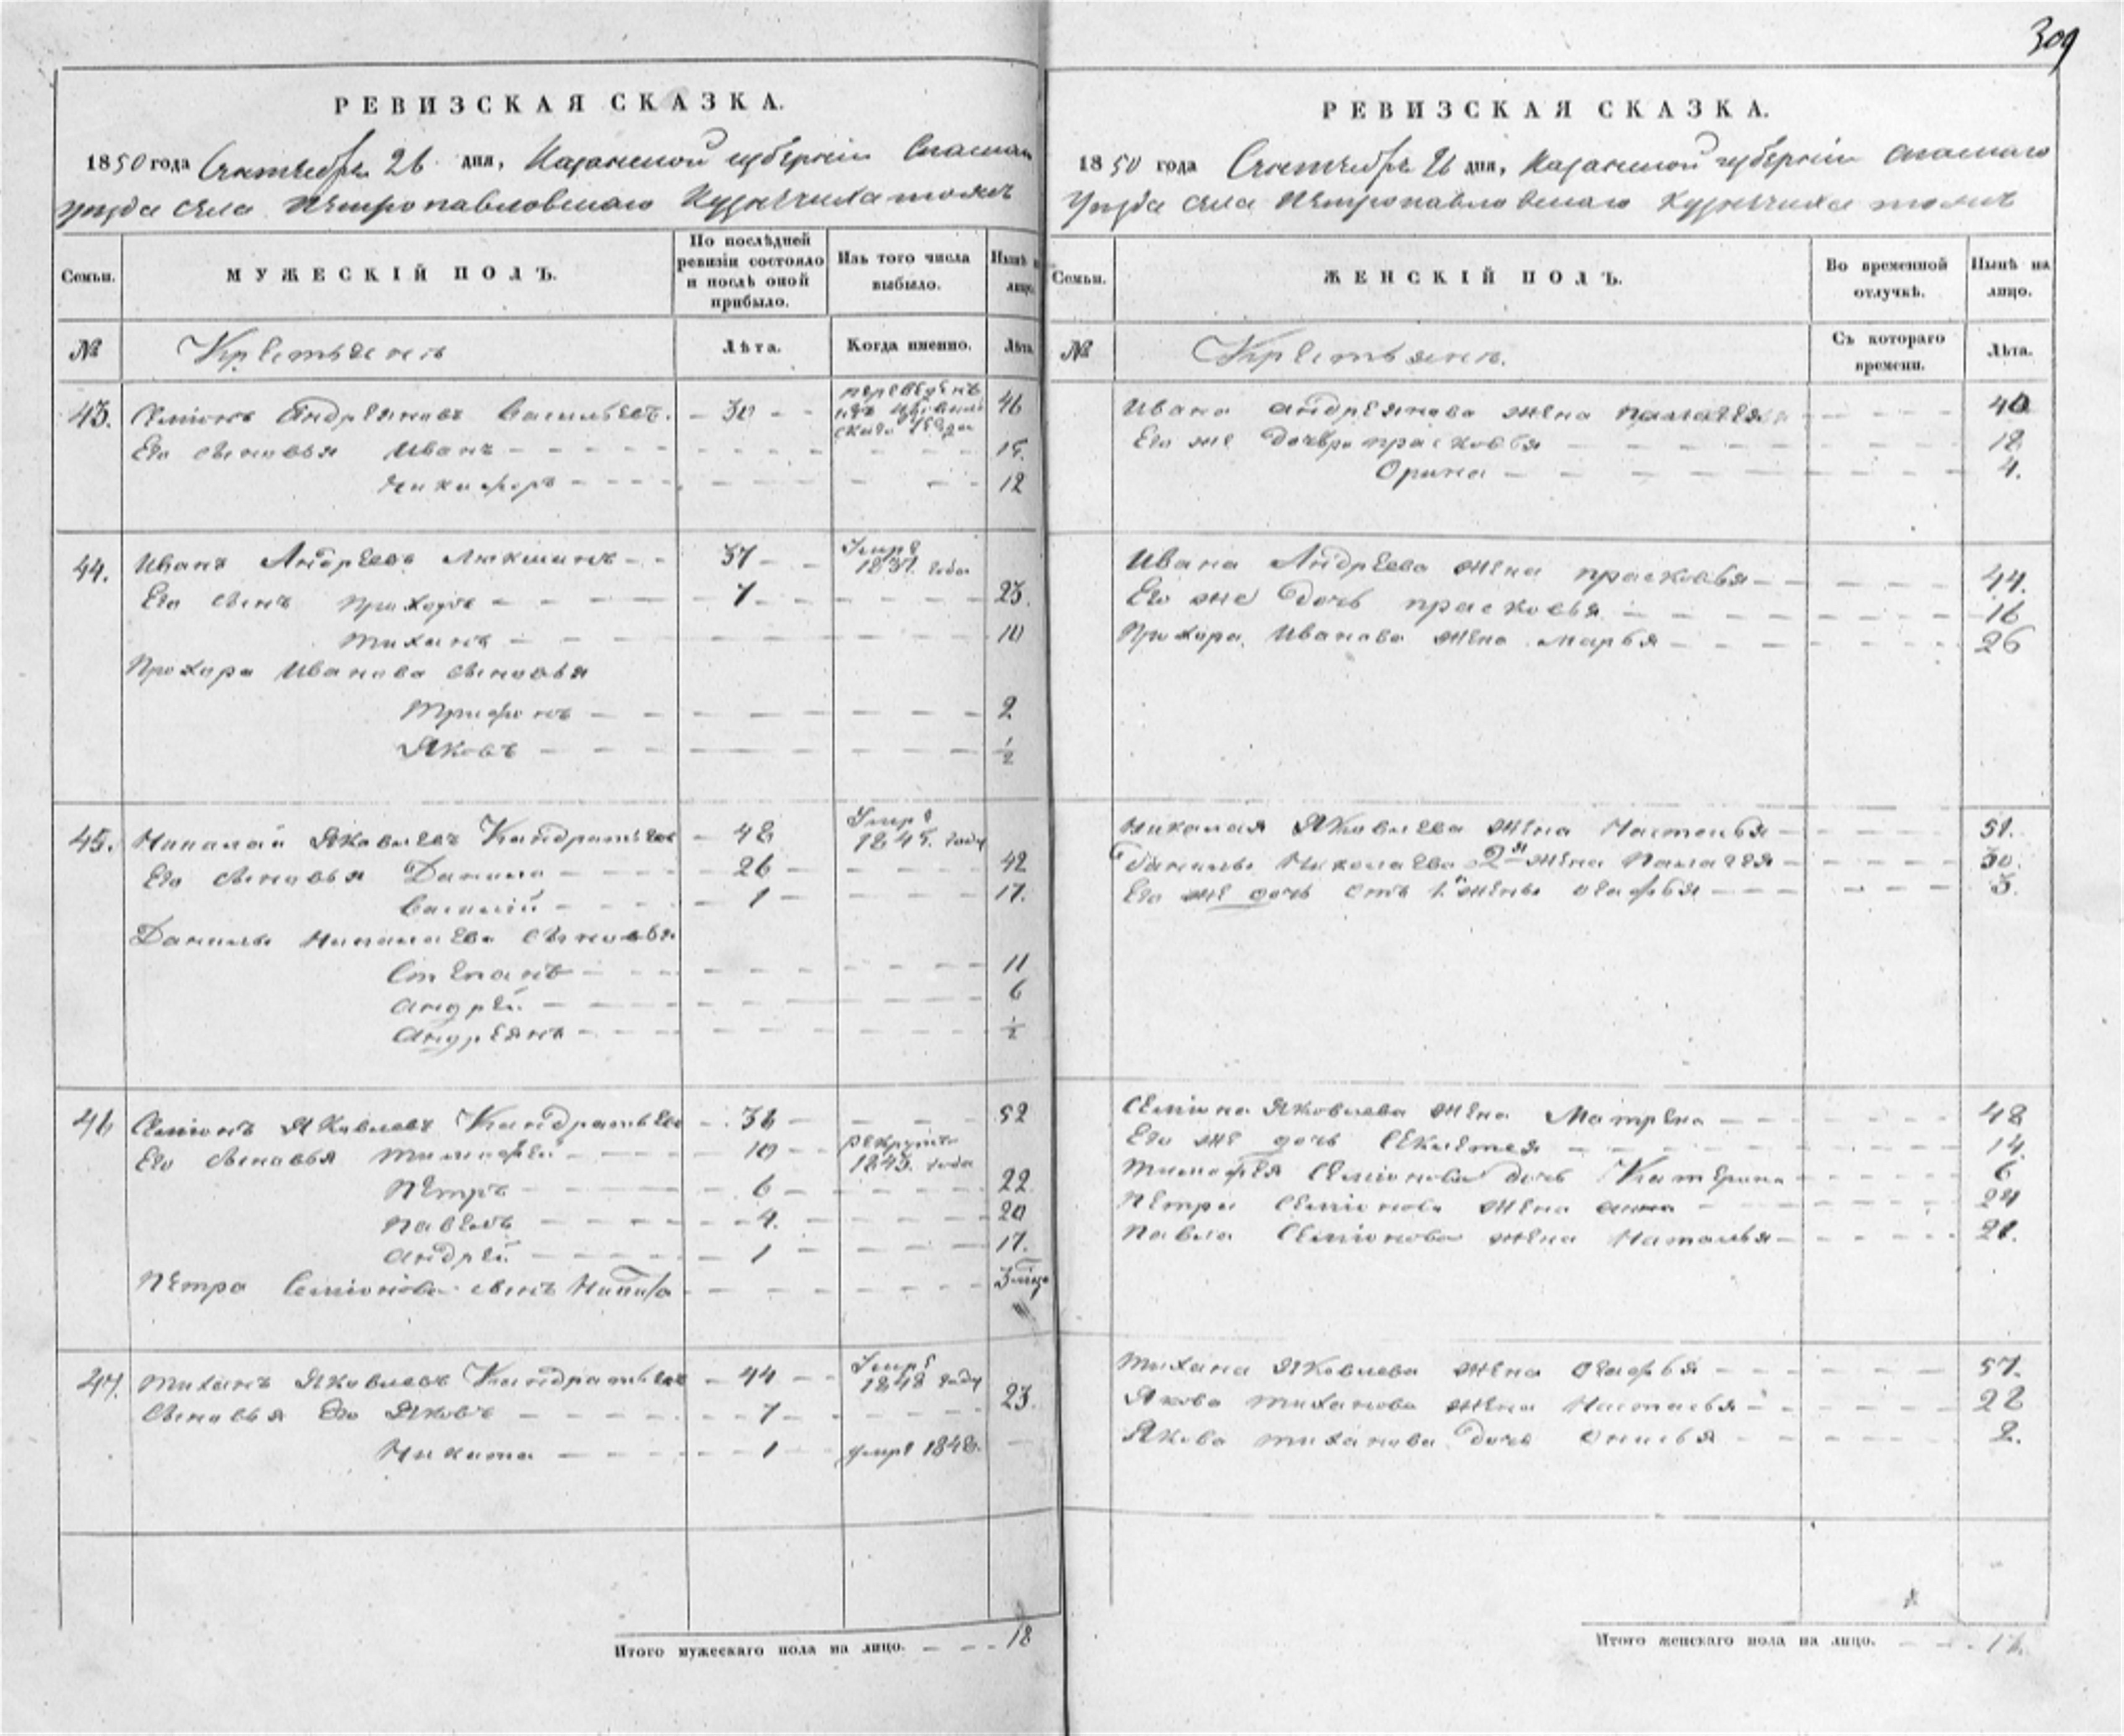 309
РЕВИЗСКАЯ СКАЗКА.
1850 года Сентября 26 дня, Казанской губернiи
уезда села Петропавловскаго тожъ
Семьи.
МУЖЕСКІЙ ПОЛЪ.
По послѣдней ревизіи состояло и послѣ оной прибыло.
Изъ того числа выбыло.
Нынѣ на лицо.
№
Крестьяне
Лѣта.
Когда именно.
Лѣта.
43. Семіонъ Андреяновъ Васильевъ. 30 переведенъ изъ уезда 46
Его сыновья Иванъ
Никифоръ 12
44. Иванъ Андреевъ 37 Умре 1837 года
Его сынъ Прохоръ 7 23.
Тиханъ 10
Прохора Иванова сыновья
Трифонъ 2
Яковъ ½
45. Николай Яковлевъ Кандратьевъ 48 Умре 1845. году
Его сыновья Данила 26 42
Василій 1 17.
Данилы Николаева сыновья
Степанъ 11
Андрей 6
Андреянъ ½
46 Семіонъ Яковлевъ Кандратьевъ 36 52
Его сыновья Тимофей 10 рекрутъ 1843. года
Петръ 6 22
Павелъ 4. 20
Андрей 1 17.
Петра Семіонова сынъ 3
47. Тиханъ Яковлевъ Кандратьевъ 44 Умре 1848 году
Сыновья Его Яковъ 7 23.
Никита 1 умре 1848.
Итого мужескаго пола на лицо. 18
РЕВИЗСКАЯ СКАЗКА.
1850 года Сентября 26 дня, Казанской губерніи
Уезда села Петропавловскаго тожъ
Семьи.
ЖЕНСКІЙ ПОЛЪ.
Во временной отлучкѣ.
Нынѣ на лицо.
№
Крестьяне.
Съ котораго времени.
Лѣта.
Ивана Андреянова жена Палагея 40
Его же прасковья 12
Орина 4.
Ивана Андреева жена прасковья 44.
Его же дочь прасковья 16
Прохора Иванова жена марья 26
Николая Яковлева жена Настасья
Данилы Николаева 2я жена Палагея 30.
Его же дочь отъ 1й жены Агафья 3.
Семіона Яковлева жена Матрена 48
Его же дочь 14.
Тимофея Семіонова дочь Катерина 6
Петра Семіонова жена анна 24
Павла Семіонова жена Наталья 21.
Тихана Яковлева жена Агафья 57.
Якова Тиханова жена Настасья 22
Якова Тиханова дочь 2.
Итого женскаго пола на лицо.